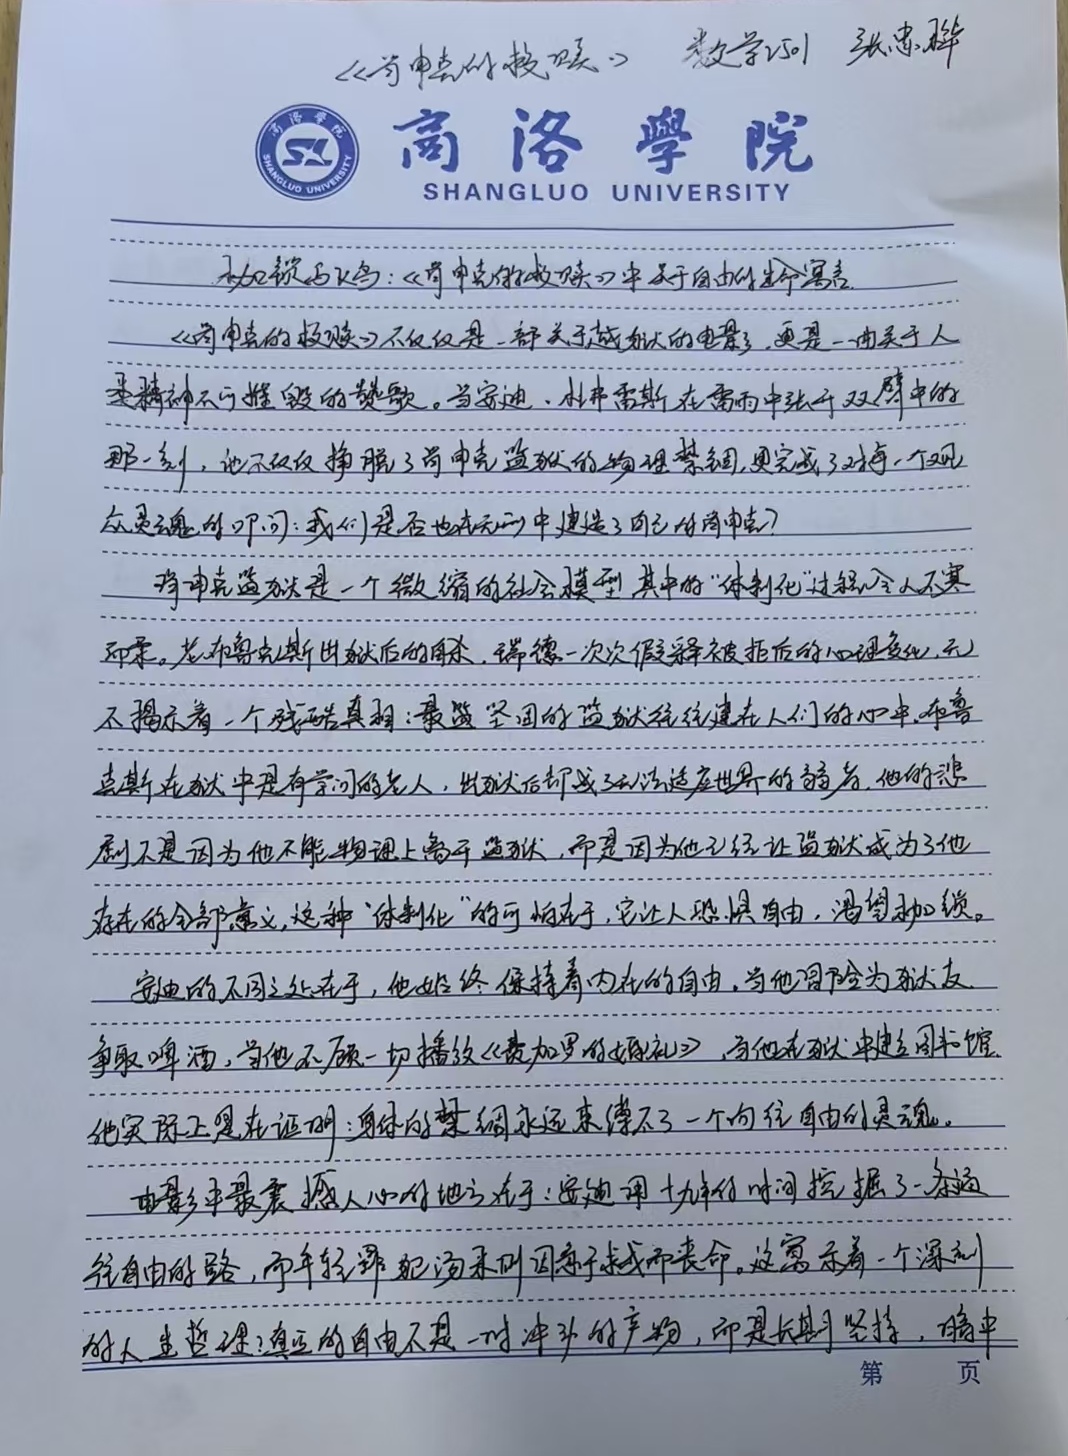 《肖申克的救赎》 数学2501 张忠骅
商洛學院
SHANGLUO UNIVERSITY
商洛學院
SHANGLUO UNIVERSITY
枷锁与飞鸟:《肖申克的救赎》中关于自由的生命寓言
《肖申克的救赎》不仅仅是一部关于越狱的电影,更是一曲关于人
类精神不可摧毁的赞歌。当安迪·杜弗雷斯在雷雨中张开双臂中的
那一刻,他不仅仅挣脱了肖申克监狱的物理禁锢,更完成了对每一个观
众灵魂的叩问:我们是否也在无形中建造了自己的肖申克?
肖申克监狱是一个微缩的社会模型,其中的“体制化”过程令人不寒
而栗。老布鲁克斯出狱后的自杀,瑞德一次次假释被拒后的心理变化,无
不揭示着一个残酷真相:最坚固的监狱往往建在人们的心中。布鲁
克斯在狱中是有学问的老人,出狱后却成了无法适应世界的弱者,他的悲
剧不是因为他不能物理上离开监狱,而是因为他已经让监狱成为了他
存在的全部意义,这种“体制化”的可怕在于,它让人恐惧自由,渴望枷锁。
安迪的不同之处在于,他始终保持着内在的自由。当他冒险为狱友
争取啤酒,当他不顾一切播放《费加罗的婚礼》,当他在狱中建立图书馆,
他实际上是在证明:身体的禁锢永远束缚不了一个向往自由的灵魂。
电影中最震撼人心的地方在于:安迪用十九年的时间挖掘了一条通
往自由的路,而年轻罪犯汤米则因急于求成而丧命。这寓示着一个深刻
的人生哲理:真正的自由不是一时冲动的产物,而是长期坚持,暗中
第 页